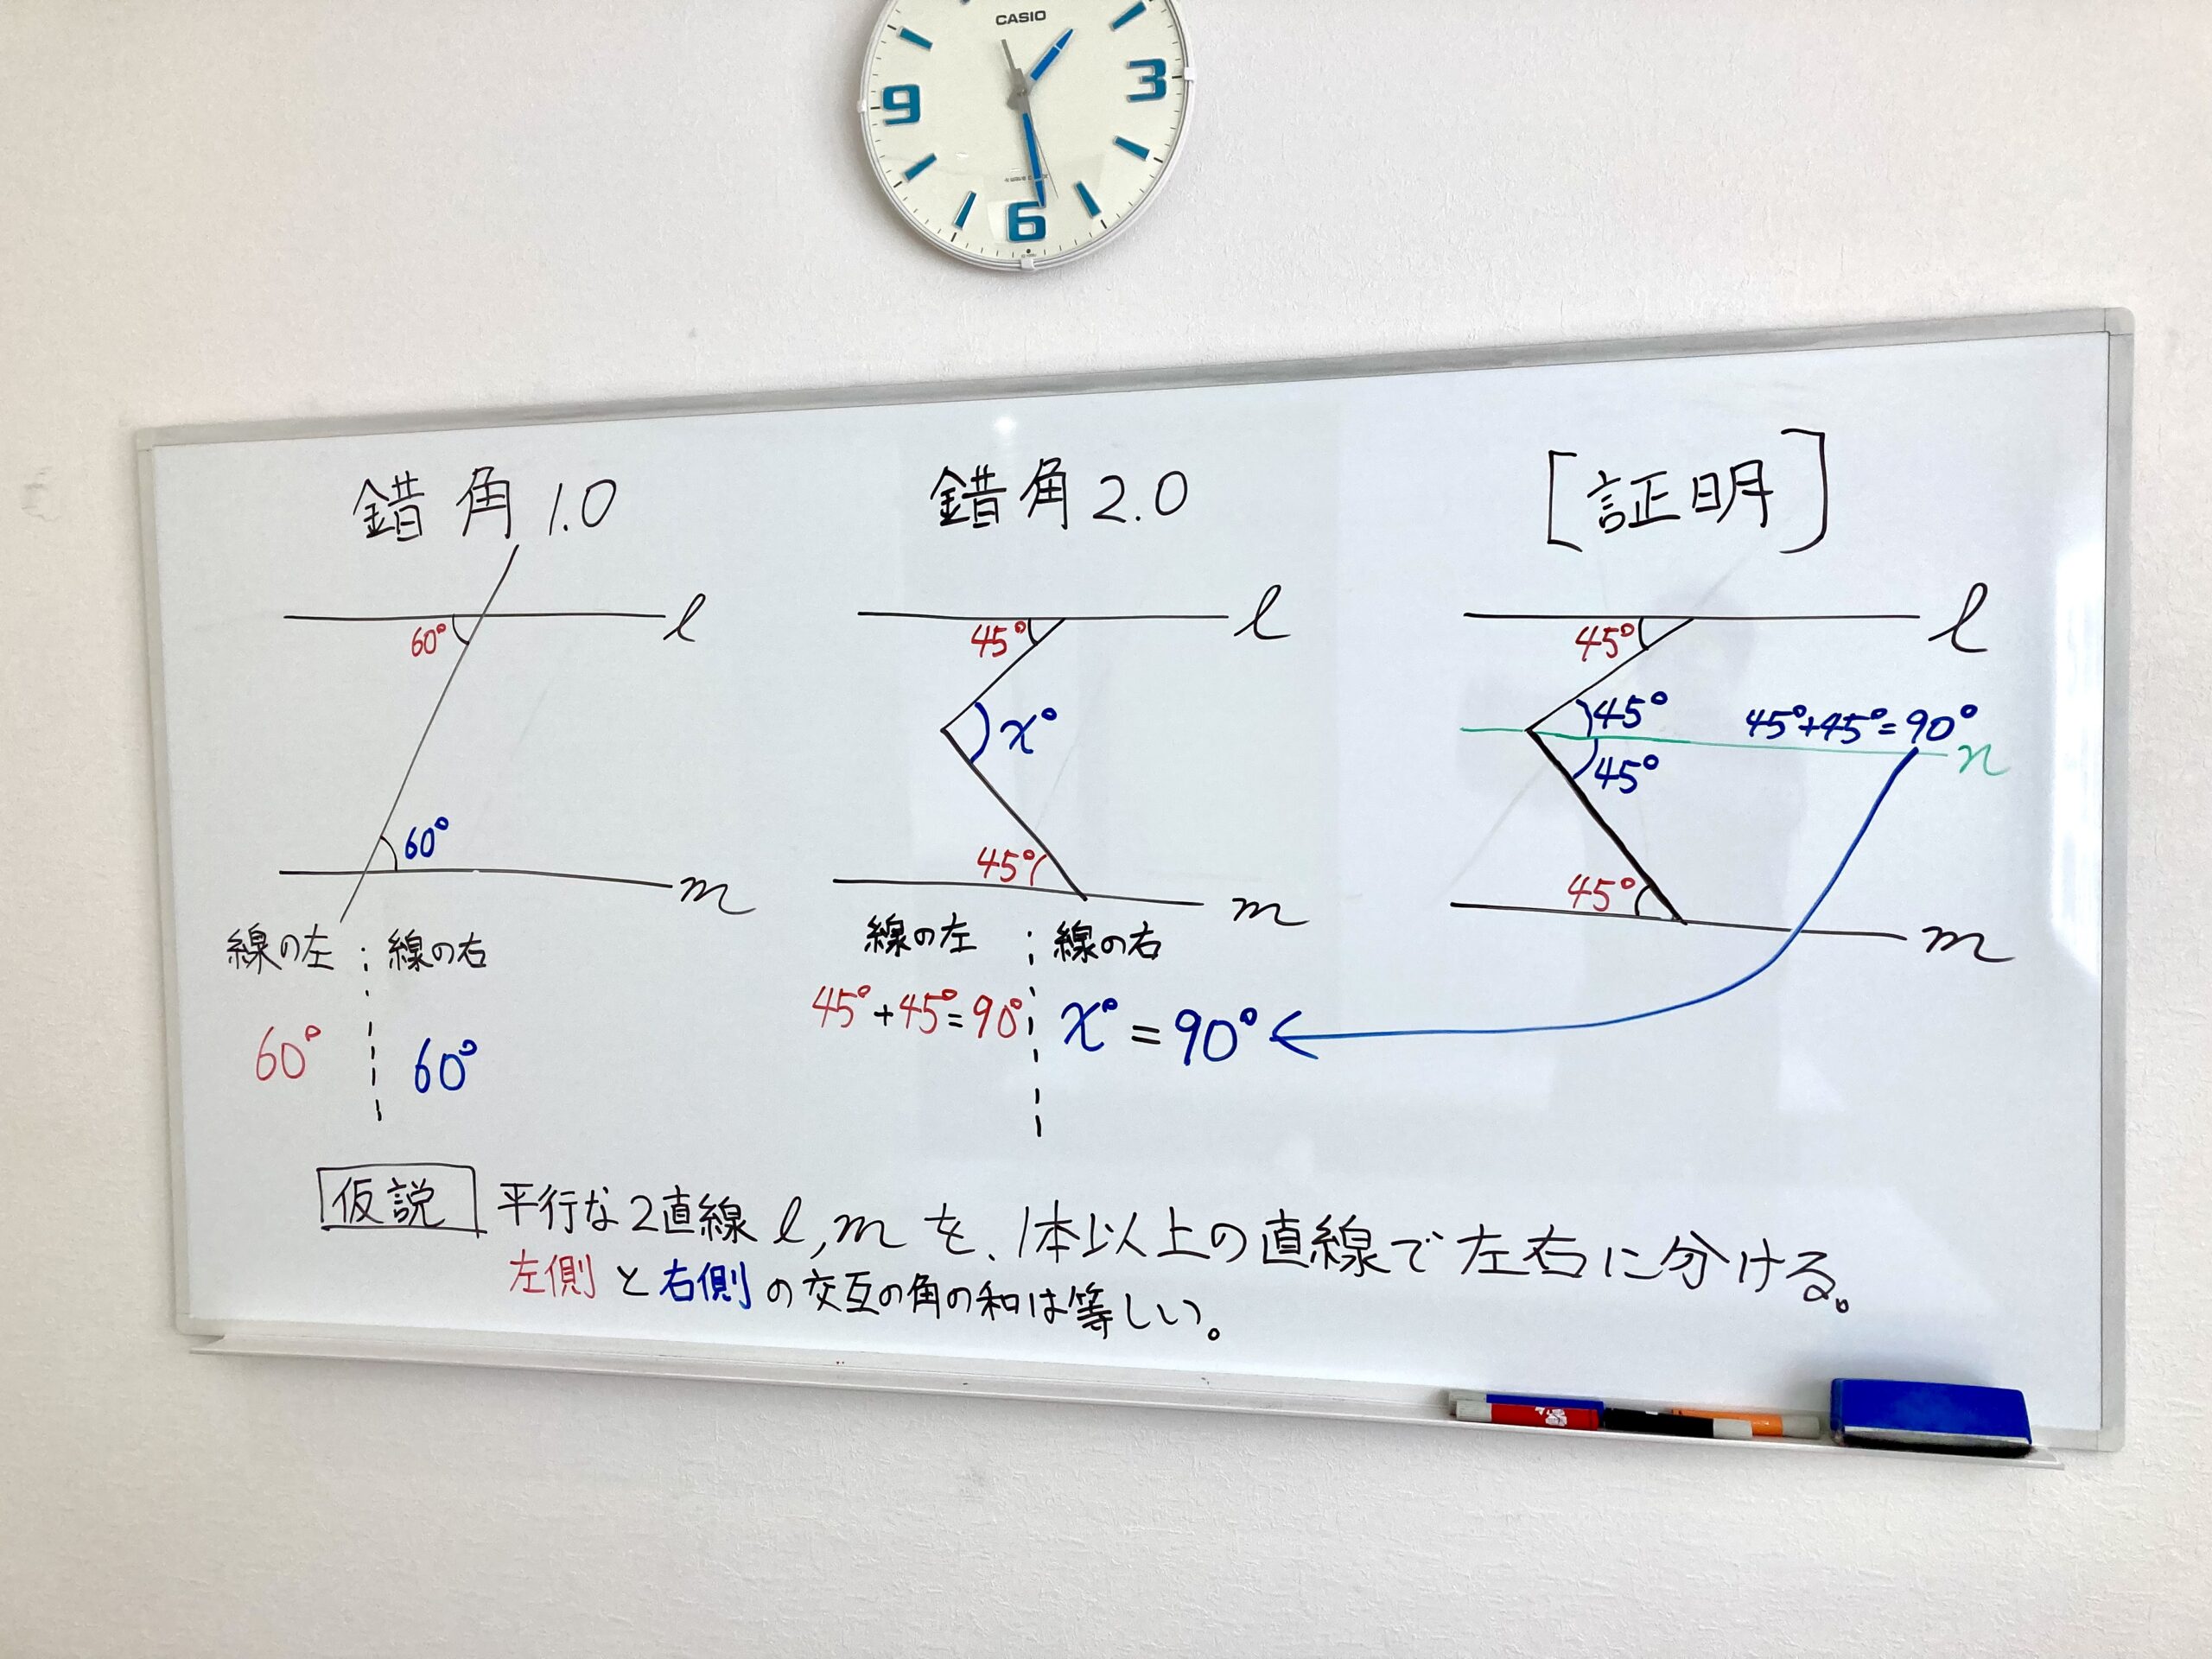 CASIO
3
9
6
錯角1.0
60°
l
60°
m
線の左 線の右
60° 60°
錯角2.0
45°
l
x°
45°
m
線の左 線の右
45°+45°=90° x°=90°
[証明]
45°
l
45°
45°+45°=90°
n
45°
45°
m
仮説 平行な2直線l,mを、1本以上の直線で左右に分ける。
左側と右側の交互の角の和は等しい。